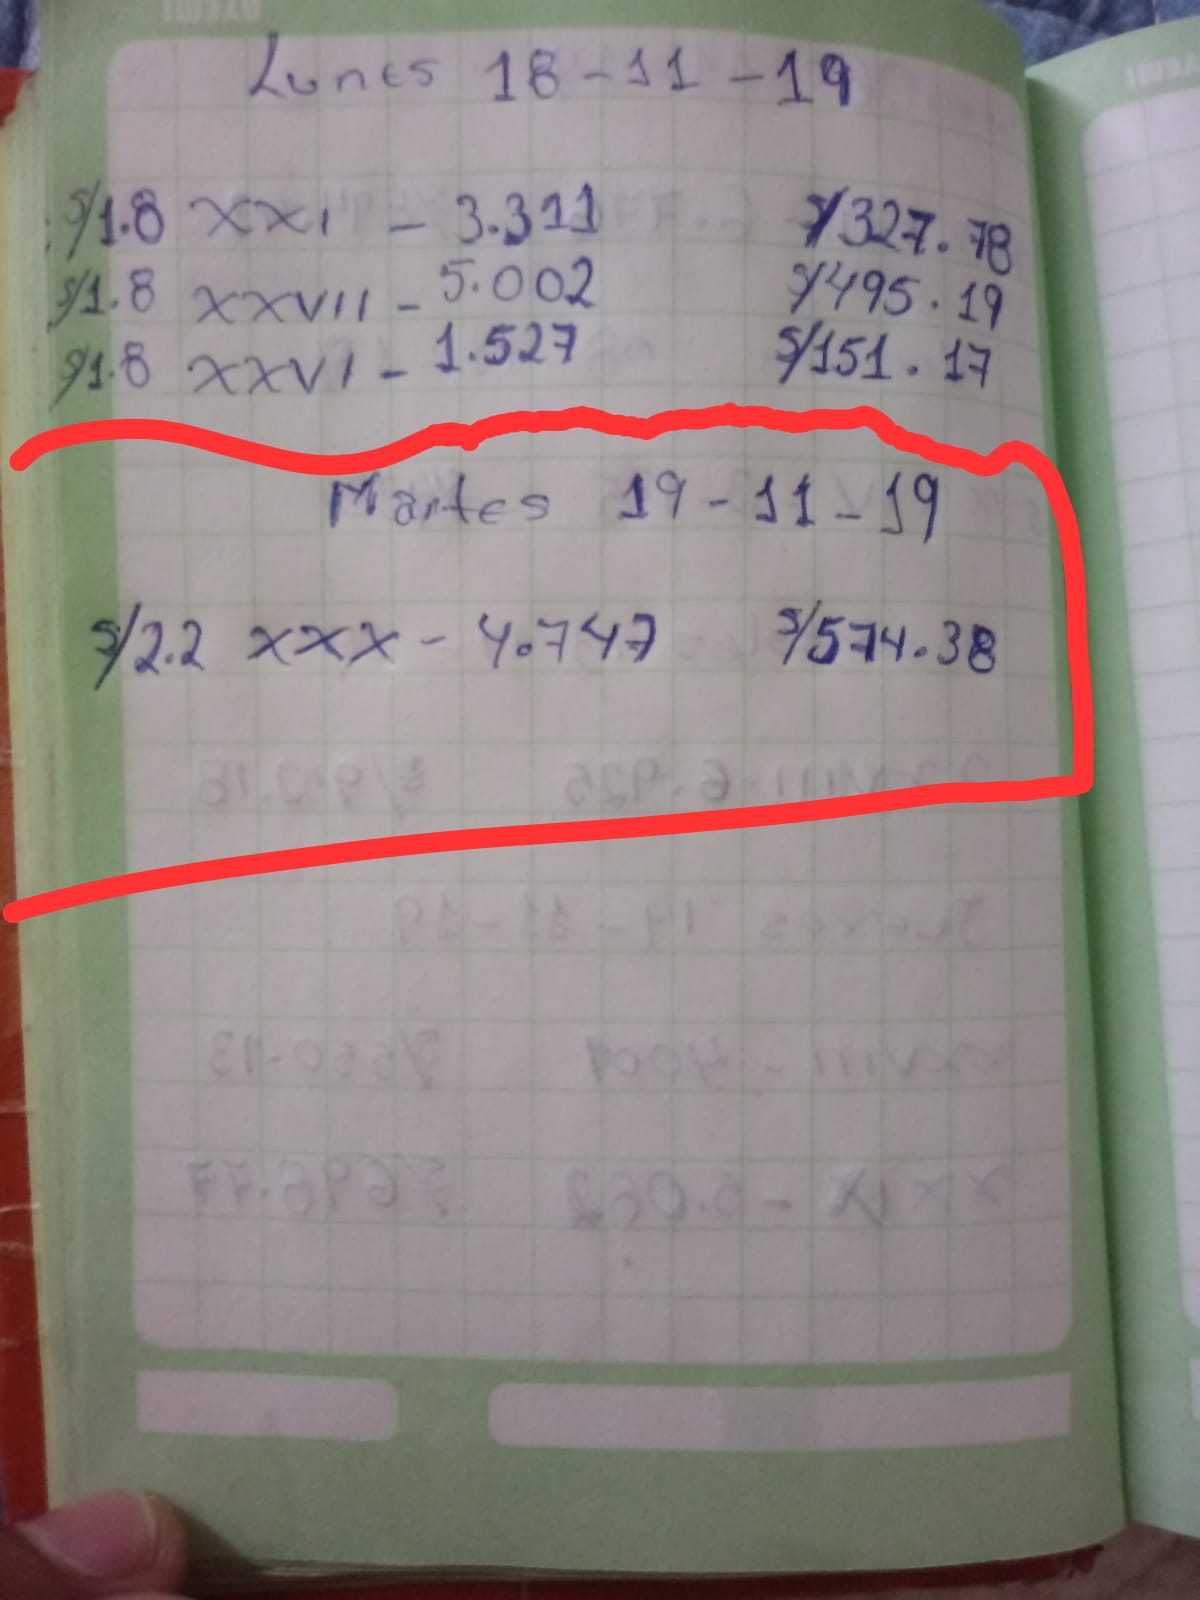 Lunes 18-11-19
S/1.8 XXI - 3.311 S/327.78
S/1.8 XXVII - 5.002 S/495.19
S/1.8 XXVI - 1.527 S/151.17
Martes 19-11-19
S/2.2 XXX - 4.747 S/574.38